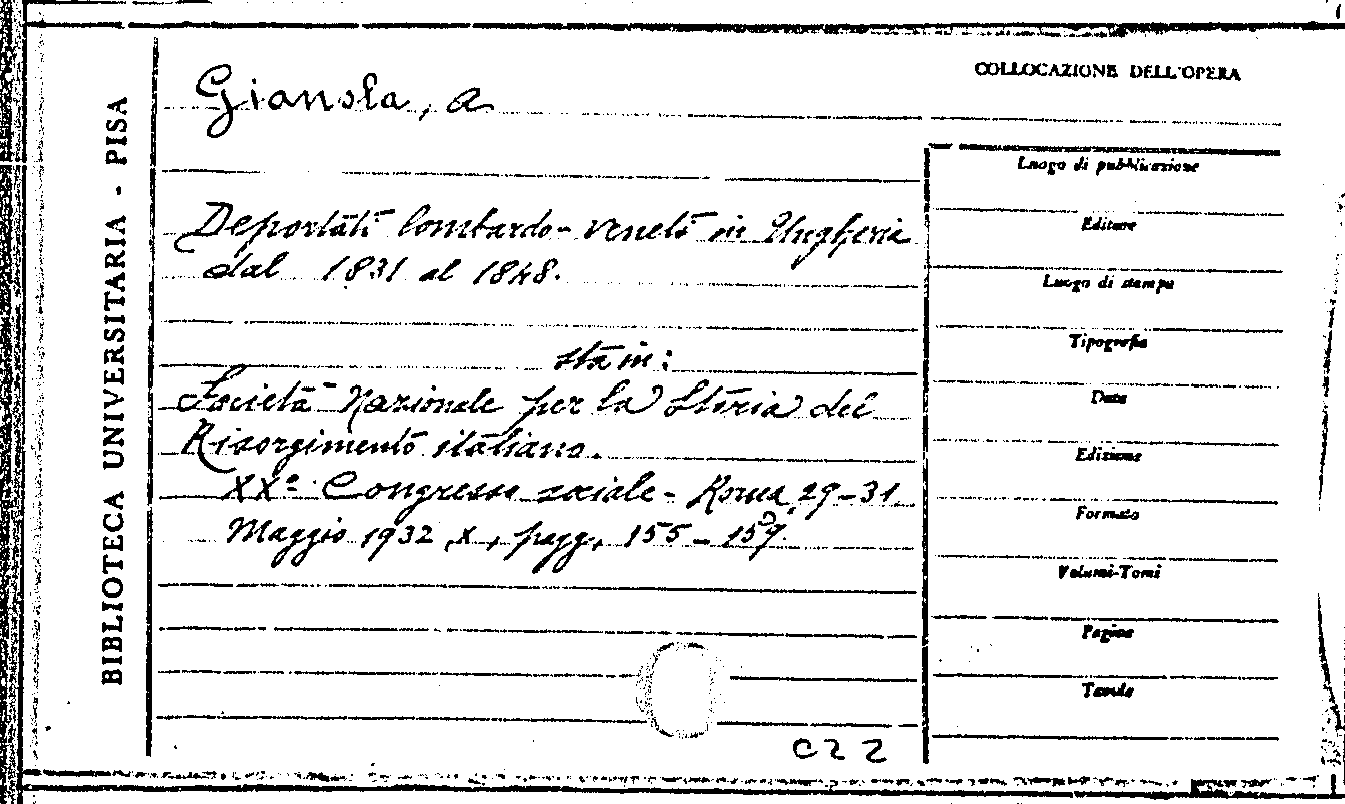 COLLOCAZIONE DELL'OPERA
BIBLIOTECA UNIVERSITARIA - PISA
Gianola, A
Deportati lombardo-veneti in Ungheria
dal 1831 al 1848.
sta in:
Società Nazionale per la Storia del
Risorgimento italiano.
XXº Congresso sociale - Roma, 29-31
Maggio 1932, X, pagg. 155-159
C22
Luogo di pubblicazione
Editore
Luogo di stampa
Tipografia
Data
Edizione
Formato
Volumi-Tomi
Pagine
Tavole